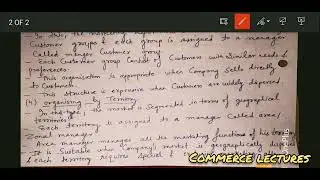 2 OF 2
Customer groups & each group is assigned to a manager
Called manager Customer group
Each Customer group Consist of Customers with Similar needs &
preferences.
This organisation is appropriate when Company Sells directly
to Customers.
This structure is expensive when Customers are widely dispersed.
(4) organising by Territory
In this type, market is Segmented in terms of geographical
territories.
Each territory is assigned to a manager Called area/
Zonal manager.
Area manager manages all the marketing functions of his
It is Suitable when Company's market is geographically
& each territory requires special
COMMERCE LECTURES